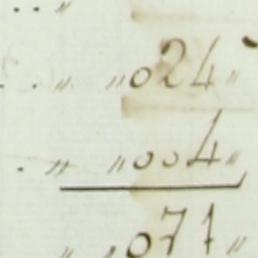 .. „
. . „ „024„
. „ „004„
„ „071„